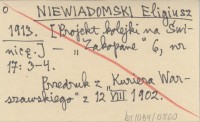 NIEWIADOMSKI Eligiusz
1913. [Projekt kolejki na Świ-
nicę.] – „Zakopane" 6, nr
17: 3-4.
Przedruk z „Kuriera War-
szawskiego" z 12 VIII 1902.